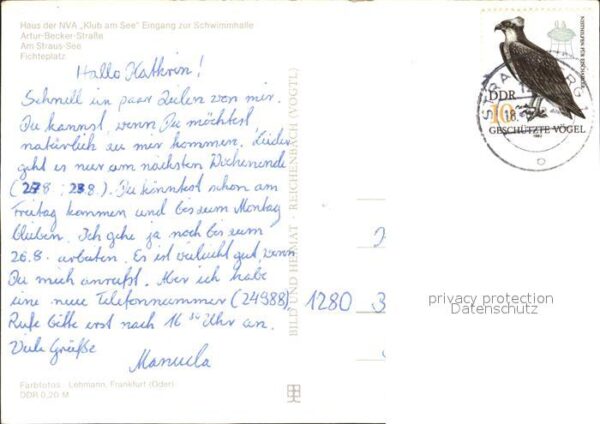 Haus der NVA „Klub am See" Eingang zur Schwimmhalle
Artur-Becker-Straße
Am Straus-See
Fichteplatz
Hallo Kathrin!
Schnell ein paar Zeilen von mir.
Du kannst, wenn Du möchtest
natürlich zu mir kommen. Leider
geht es nur am nächsten Wochenende
Du könntest schon am
Freitag kommen und bis zum Montag
bleiben. Ich gehe ja noch bis zum
26.8. arbeiten. Es ist vielleicht gut wenn
Du mich anrufst. Aber ich habe
eine neue Telefonnummer (24988).
Rufe bitte erst nach 16 Uhr an.
Viele Grüße
Manuela
Farbfotos Lehmann, Frankfurt (Oder)
DDR 0,20 M
BILD UND HEIMAT REICHENBACH (VOGTL)
1280
DDR
10
GESCHÜTZTE VÖGEL
STRAUSBERG 1
18.
privacy protection
Datenschutz